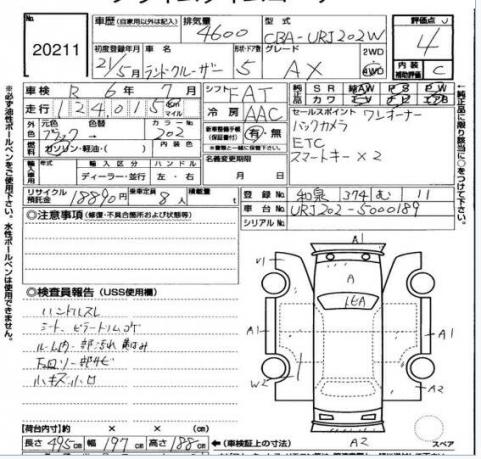 No.
20211
車歴 (自家用以外は記入)
排気量
4600
型式
CBA-URJ202W
評価点
4
初度登録年月
21/5月
車名
ランドクルーザー
形状・ドア数
5
グレード
AX
2WD
4WD
内装
補助評価
C
車検 R 6年 7月
シフト FAT
純正品
SR AW PS PW
カワ TV ナビ エアB
走行 124,015 km マイル
冷房 AAC
セールスポイント ワンオーナー
バックカメラ
ETC
スマートキー×2
外色
元色 ブラック
色替
カラーNo. 202
新車整備手帳(保証書付) 有・無
※書類と一緒に保管下さい。
燃料 ガソリン・軽油・( )
内装色
名義変更期限
月 日
輸入車
年式
輸入区分
ディーラー・並行
ハンドル
左・右
リサイクル預託金 18890円
乗車定員 8人
積載量 t
登録No. 和泉 374 む 11
車台No. URJ202-5000189
シリアルNo.
◎注意事項 (修復・不具合箇所および状態等)
◎検査員報告 (USS使用欄)
ハンドルスレ
シート、ピラートリムコゲ
ルーム内一部汚れ 傷み
下回り一部サビ
小キズ小凹
A
V1
A1
A1
W2
A2
A2
スペア
【荷台内寸】約 × × (cm)
長さ 495cm 幅 197cm 高さ 188cm ←(車検証上の寸法)
※必ず油性ボールペンをご使用下さい。水性ボールペンは使用できません。
←純正品に限り該当に○をつけて下さい。